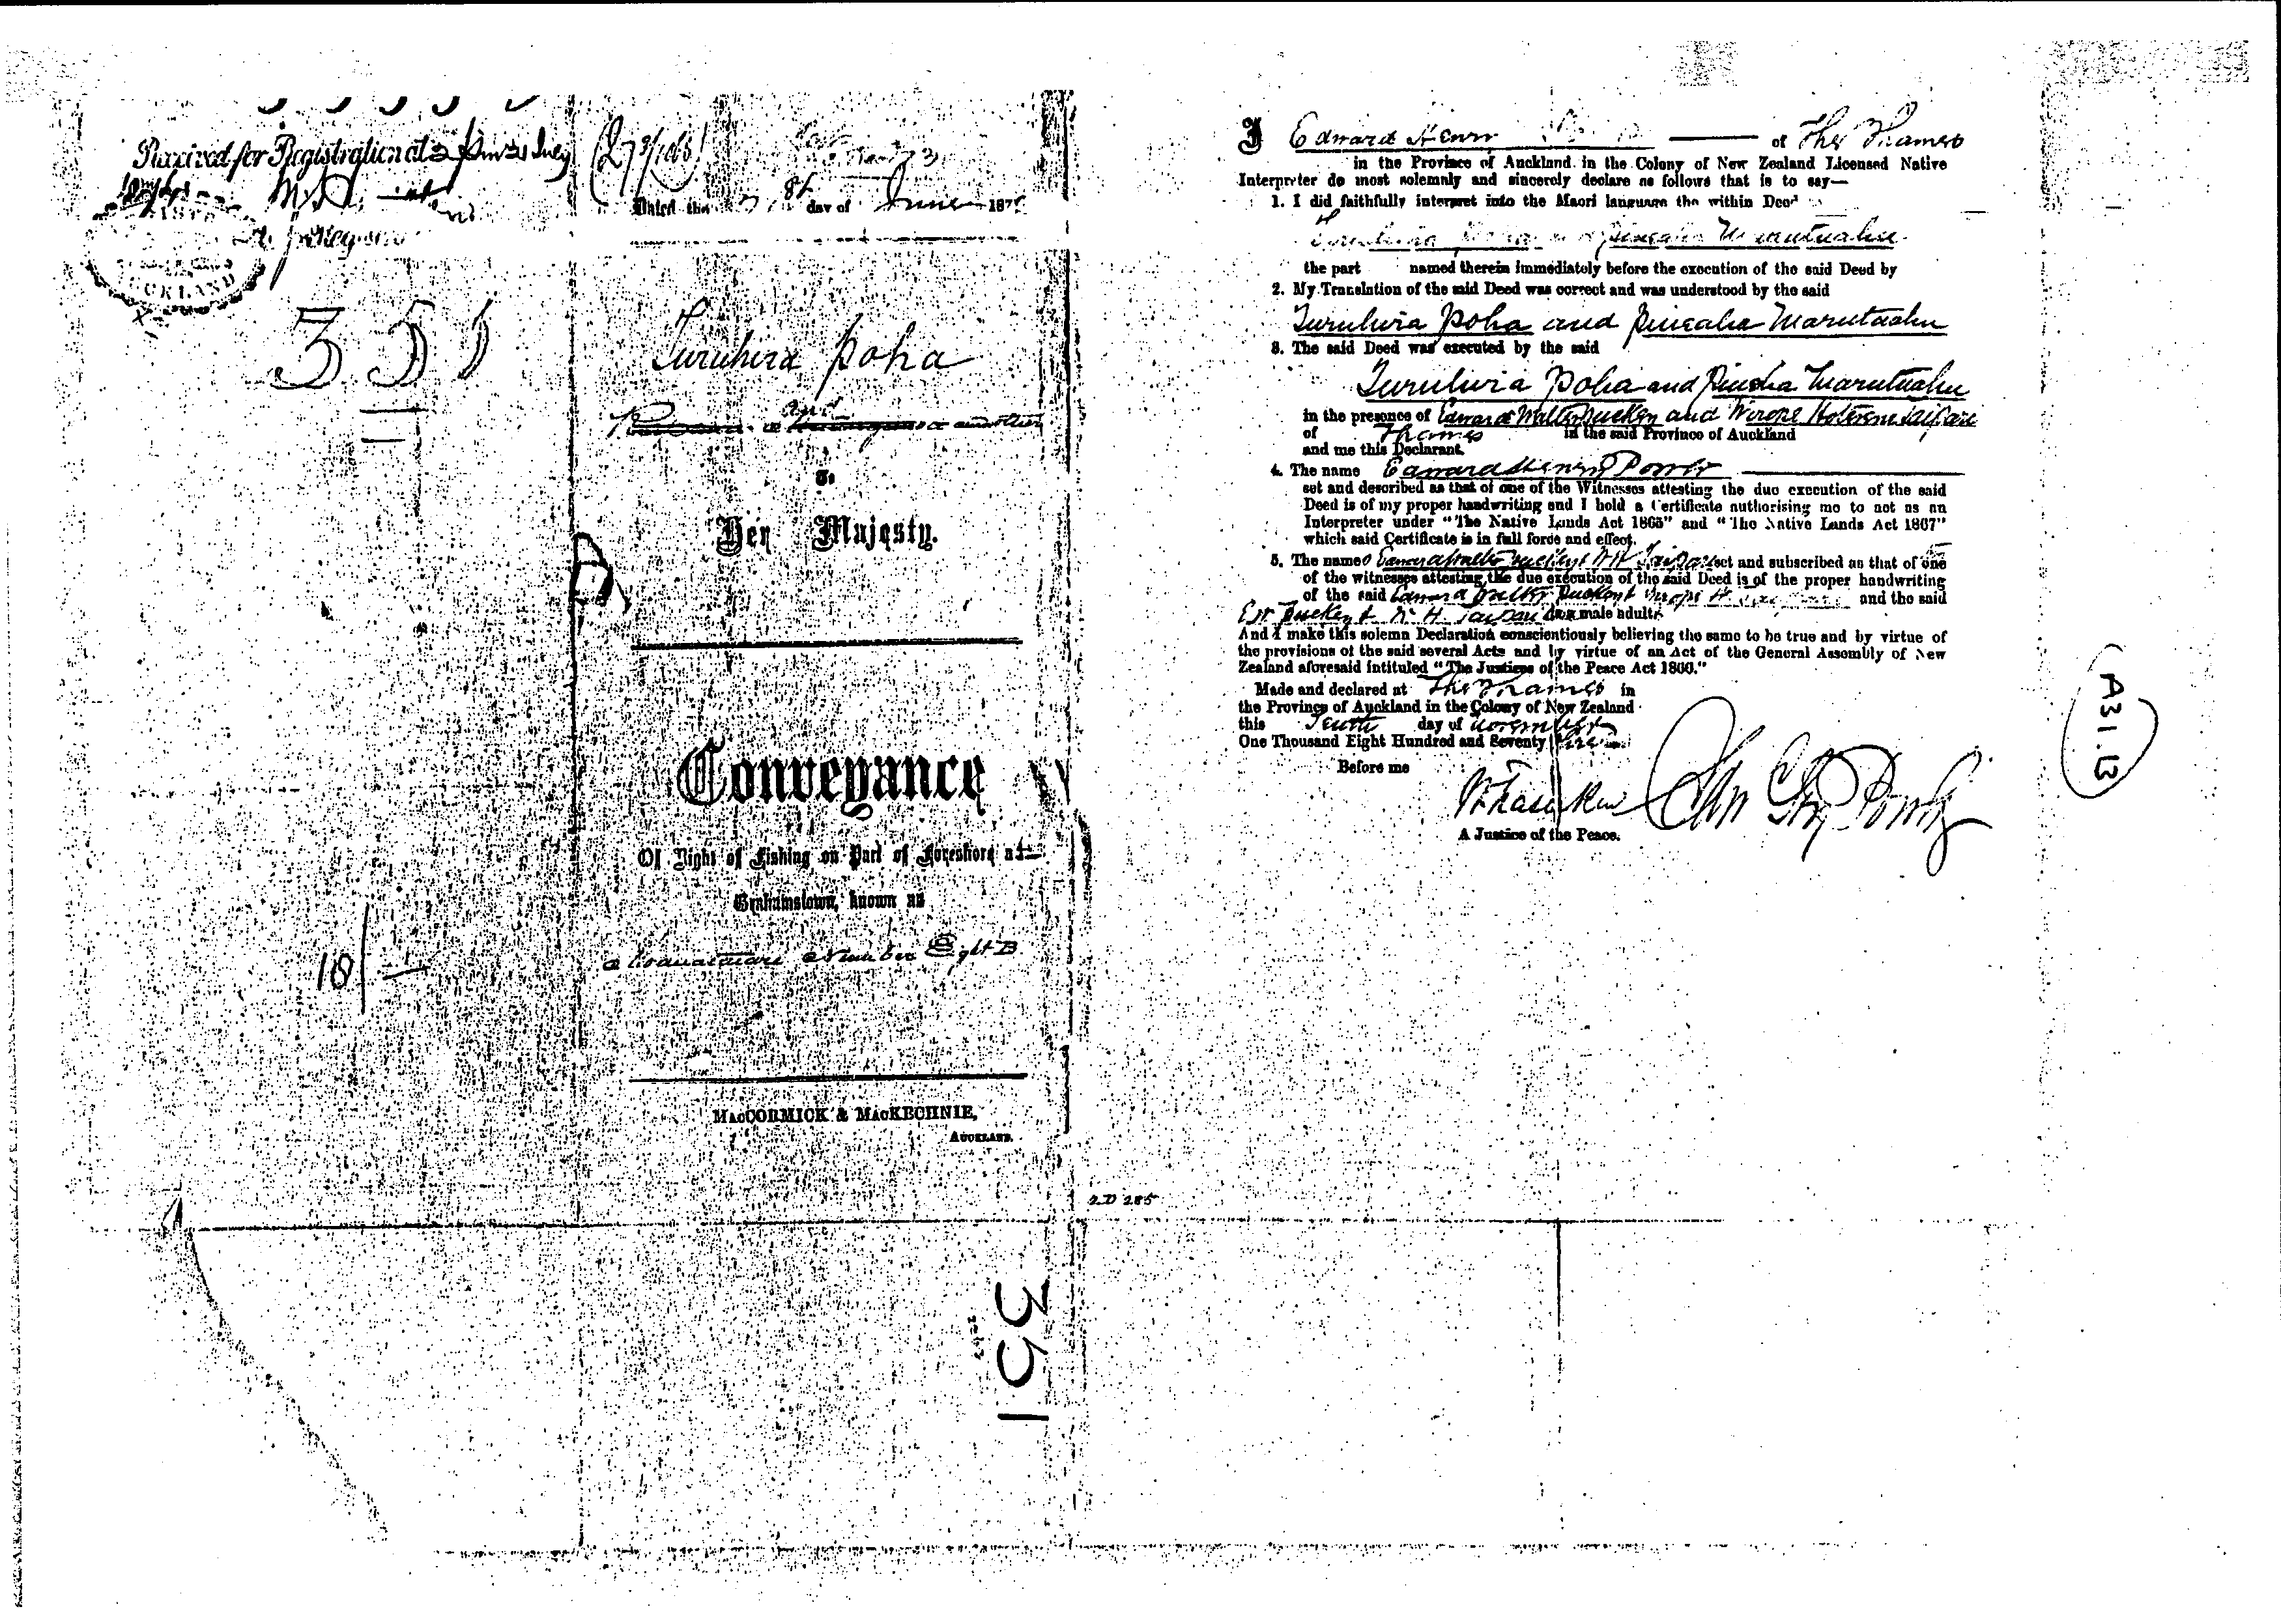 Received for Registration at 2 pm 21 July
AUCKLAND
351
18/-
Dated the 8th day of June 187
Turuhira Poha
and another
To
Her Majesty.
Conveyance
Of Right of Fishing on Part of Foreshore at
Grahamstown, known as
Number Eight B
MACCORMICK & MACKECHNIE,
AUCKLAND.
2D 285
351
I Edward Henry of The Thames
in the Province of Auckland in the Colony of New Zealand Licensed Native
Interpreter do most solemnly and sincerely declare as follows that is to say—
1. I did faithfully interpret into the Maori language the within Deed
the part named therein immediately before the execution of the said Deed by
2. My Translation of the said Deed was correct and was understood by the said
Turuhira Poha and Marutuahu
3. The said Deed was executed by the said
Turuhira Poha and Marutuahu
in the presence of Edward Walter Puckey and Wirope Hoterene Taipari
of Thames in the said Province of Auckland
and me this Declarant.
4. The name Edward Henry Power
set and described as that of one of the Witnesses attesting the due execution of the said
Deed is of my proper handwriting and I hold a Certificate authorising me to act as an
Interpreter under "The Native Lands Act 1865" and "The Native Lands Act 1867"
which said Certificate is in full force and effect.
5. The names Edward Walter Puckey & W H Taipari set and subscribed as that of one
of the witnesses attesting the due execution of the said Deed is of the proper handwriting
of the said Edward Walter Puckey & Wirope H and the said
E W Puckey & W. H. Taipari are male adults
And I make this solemn Declaration conscientiously believing the same to be true and by virtue of
the provisions of the said several Acts and by virtue of an Act of the General Assembly of New
Zealand aforesaid intituled "The Justices of the Peace Act 1866."
Made and declared at The Thames in
the Province of Auckland in the Colony of New Zealand
this Tenth day of November
One Thousand Eight Hundred and Seventy
Before me
A Justice of the Peace.
A31.13